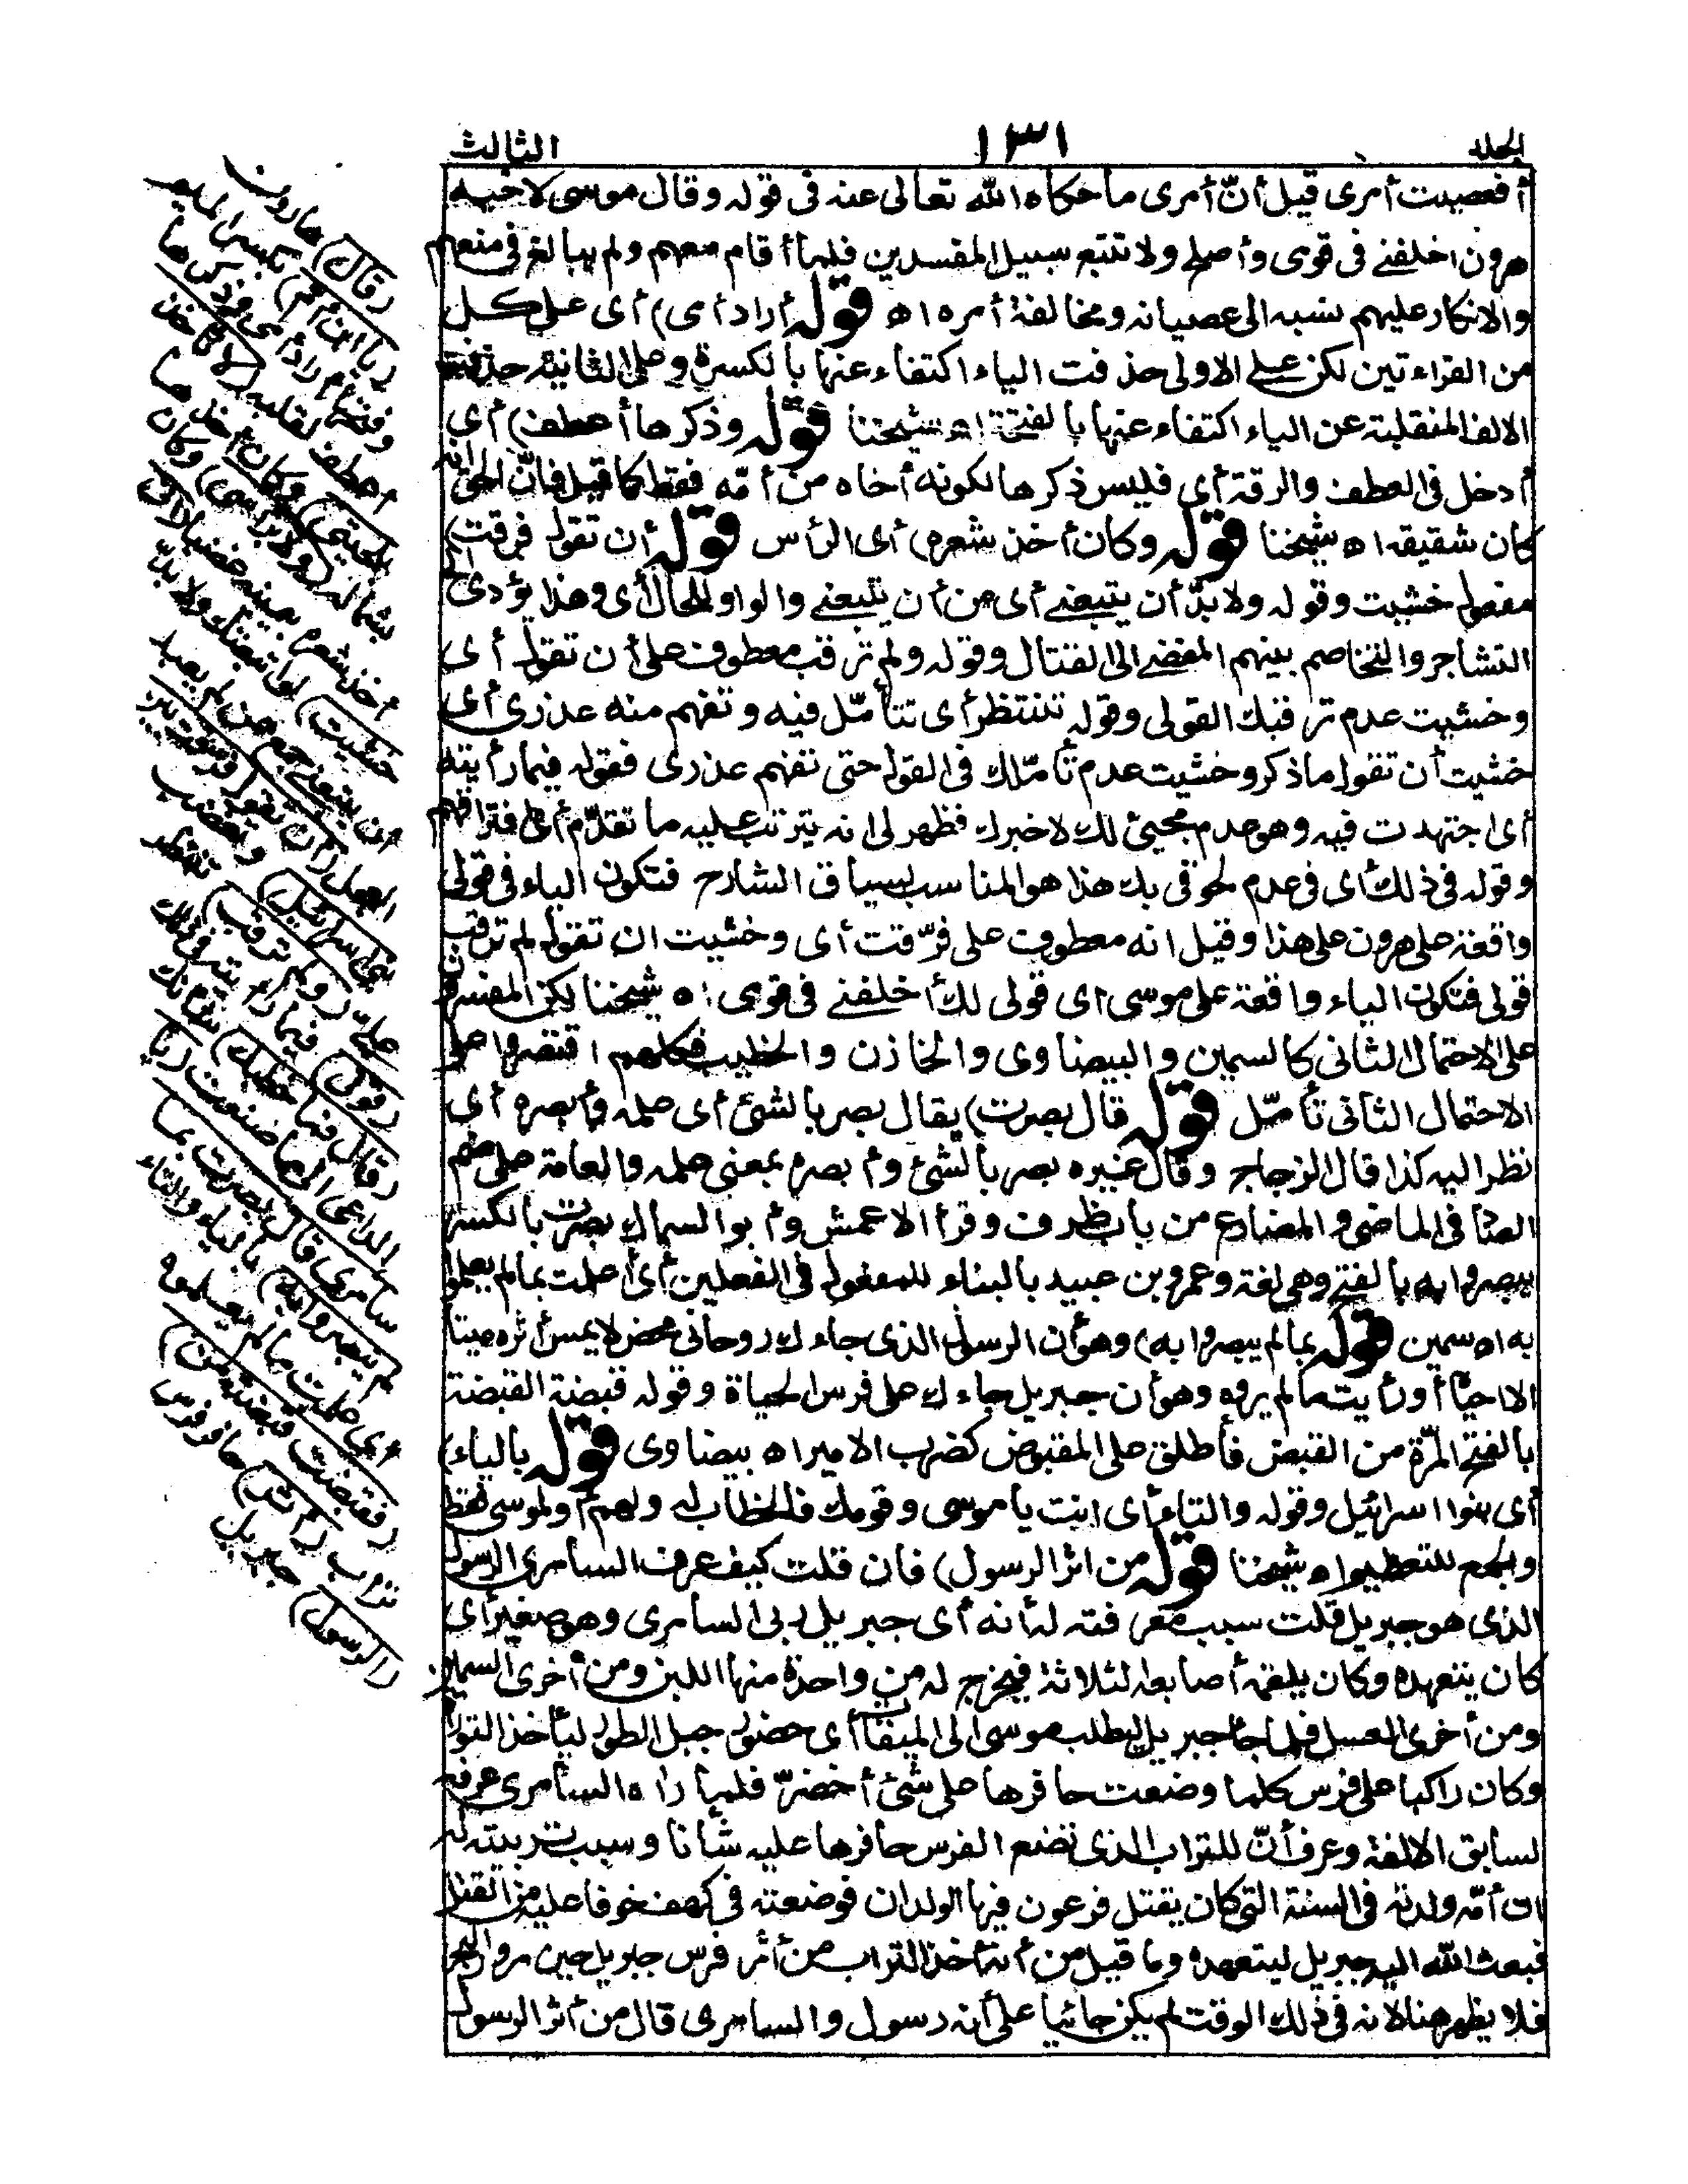 الجلد ١٣١ الثالث
أفعصيت أمرى قيل أنّ أمرى ما حكاه الله تعالى عنه فى قوله وقال موسى لاخيه
هرون اخلفنى فى قومى وأصلح ولا تتبع سبيل المفسدين فلما أقام معهم ولم يبالغ فى منعهم
والانكار عليهم نسبه الى عصيانه ومخالفة أمره اه قوله أراد أمى) أى على كل
من القراءتين لكن على الاولى حذفت الياء اكتفاء عنها بالكسرة وعلى الثانية حذفت
الالف المنقلبة عن الياء اكتفاء عنها بالفتحة اه شيخنا قوله وذكرها أعطف) أى
أدخل فى العطف والرقة أى فليس ذكرها لكونه أخاه من أمّه فقط كما قيل فانّ الحق انه
كان شقيقه اه شيخنا قوله وكان أخذ شعره) أى الرأس قوله أن تقول فرقت)
مفعول خشيت وقوله ولا بدّ أن يتبعنى أى من أن يتبعنى والواو للحال أى وهذا يؤدى الى
التشاجر والتخاصم بينهم المفضى الى القتال وقوله ولم ترقب معطوف على أن تقول أى
وخشيت عدم ترقبك القولى وقوله تنتظر أى تتأمّل فيه وتفهم منه عذرى أى
خشيت أن تقول ما ذكر وخشيت عدم تأمّلك فى القول حتى تفهم عذرى فقوله فيما رأيته
أى اجتهدت فيه وهو عدم مجيئ لك لاخبرك فظهر لى انه يترتب عليه ما تقدّم أى افتراقهم
وقوله فى ذلك أى فى عدم لحوقى بك هذا هو المناسب لسياق الشارح فتكون الياء فى قولى
واقعة على هرون على هذا وقيل انه معطوف على فرّقت أى وخشيت ان تقول لم ترقب
قولى فتكون الياء واقعة على موسى أى قولى لك أخلفنى فى قومى اه شيخنا لكن المفسرون
على الاحتمال الثانى كالسمين والبيضاوى والخازن والخطيب فكلهم اقتصروا على
الاحتمال الثانى تأمّل قوله قال بصرت) يقال بصر بالشئ أى علمه وأبصره أى
نظر اليه كذا قال الزجاج وقال غيره بصر بالشئ وأبصره بمعنى علمه والعامة على ضم
الصاد فى الماضى والمضارع من باب ظرف وقرأ الاعمش وأبو السمال بصرت بالكسر
يبصروا به بالفتح وهى لغة وعمرو بن عبيد بالبناء للمفعول فى الفعلين أى أعلمت بما لم يعلموا
به اه سمين قوله بما لم يبصروا به) وهو أن الرسول الذى جاءك روحانى محض لا يمس أثره ميتا
الا احياه أو رأيت ما لم يروه وهو أن جبريل جاءك على فرس الحياة وقوله قبضة القبضة
بالفتح المرّة من القبض فأطلق على المقبوض كضرب الامير اه بيضاوى قوله بالياء)
أى بنوا اسرائيل وقوله والتاء أى انت يا موسى وقومك فالخطاب له ولهم أو لموسى فقط
والجمع للتعظيم اه شيخنا قوله من اثر الرسول) فان قلت كيف عرف السامرى الرسول
الذى هو جبريل قلت سبب معرفته له أنه أى جبريل ربى السامرى وهو صغير أى
كان يتعهده وكان يلقمه أصابعه الثلاثة فيخرج له من واحدة منها اللبن ومن أخرى السمن
ومن أخرى العسل فلما جاء جبريل ليطلب موسى الى الميقات أى حضور جبل الطور ليأخذ التوراة
وكان راكبا على فرس كلما وضعت حافرها على شئ أخضرّ فلما رآه السامرى عرفه
لسابق الالفة وعرف أنّ للتراب الذى تضع الفرس حافرها عليه شأنا وسبب تربيته له
ان أمّه ولدته فى السنة التى كان يقتل فرعون فيها الولدان فوضعته فى كهف خوفا عليه من القتل
فبعث الله اليه جبريل ليتعهده وما قيل من أنه أخذ التراب من أثر فرس جبريل حين مروا البحر
فلا يظهر هنا لانه فى ذلك الوقت لم يكن جائيا على أنه رسول والسامرى قال من أثر الرسول
(قال) هارون
(يا ابن أم) بكسر الميم
وفتحها أراد أمى وذكرها
أعطف لقلبه (لا تأخذ
بلحيتى) وكان أخذها
بشماله (ولا برأسى) وكان
أخذ شعره بيمينه غضبا (انى
خشيت) لو اتبعتك ولا بدّ
أن يتبعنى جمع ممن لم يعبد
العجل (أن تقول فرقت بين
بنى اسرائيل) وتغضب
على (ولم ترقب) تنتظر
(قولى) فيما رأيته فى ذلك
(قال فما خطبك) شأنك
الداعى الى ما صنعت (يا
سامرى قال بصرت بما
لم يبصروا به) بالياء والتاء
أى علمت ما لم يعلموه
(فقبضت قبضة من)
تراب (أثر) حافر فرس
(الرسول) جبريل